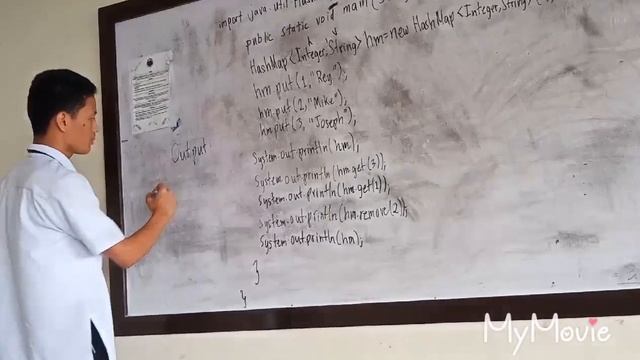 import java.util
public static void main
HashMap<Integer, String> hm=new HashMap<Integer, String>
hm.put(1, "Rey");
hm.put(2, "Mike");
hm.put(3, "Joseph");
Output
System.out.println(hm);
System.out.println(hm.get(3));
System.out.println(hm.get(1));
System.out.println(hm.remove(2));
System.out.println(hm);
}
}
MyMovie